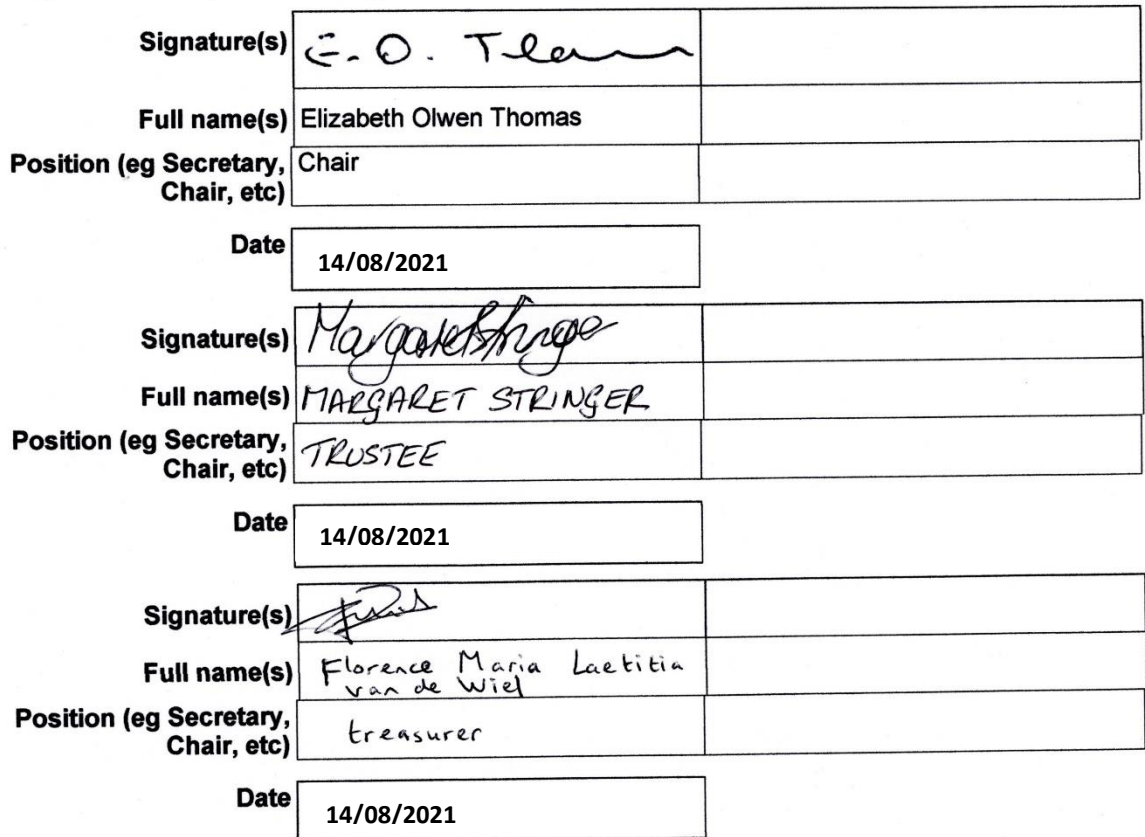 Signature(s) E. O. Thomas
Full name(s) Elizabeth Olwen Thomas
Position (eg Secretary, Chair
Chair, etc)
Date 14/08/2021
Signature(s) Margaret Stringer
Full name(s) MARGARET STRINGER
Position (eg Secretary, TRUSTEE
Chair, etc)
Date 14/08/2021
Signature(s)
Full name(s) Florence Maria Laetitia
van de Wiel
Position (eg Secretary, treasurer
Chair, etc)
Date 14/08/2021